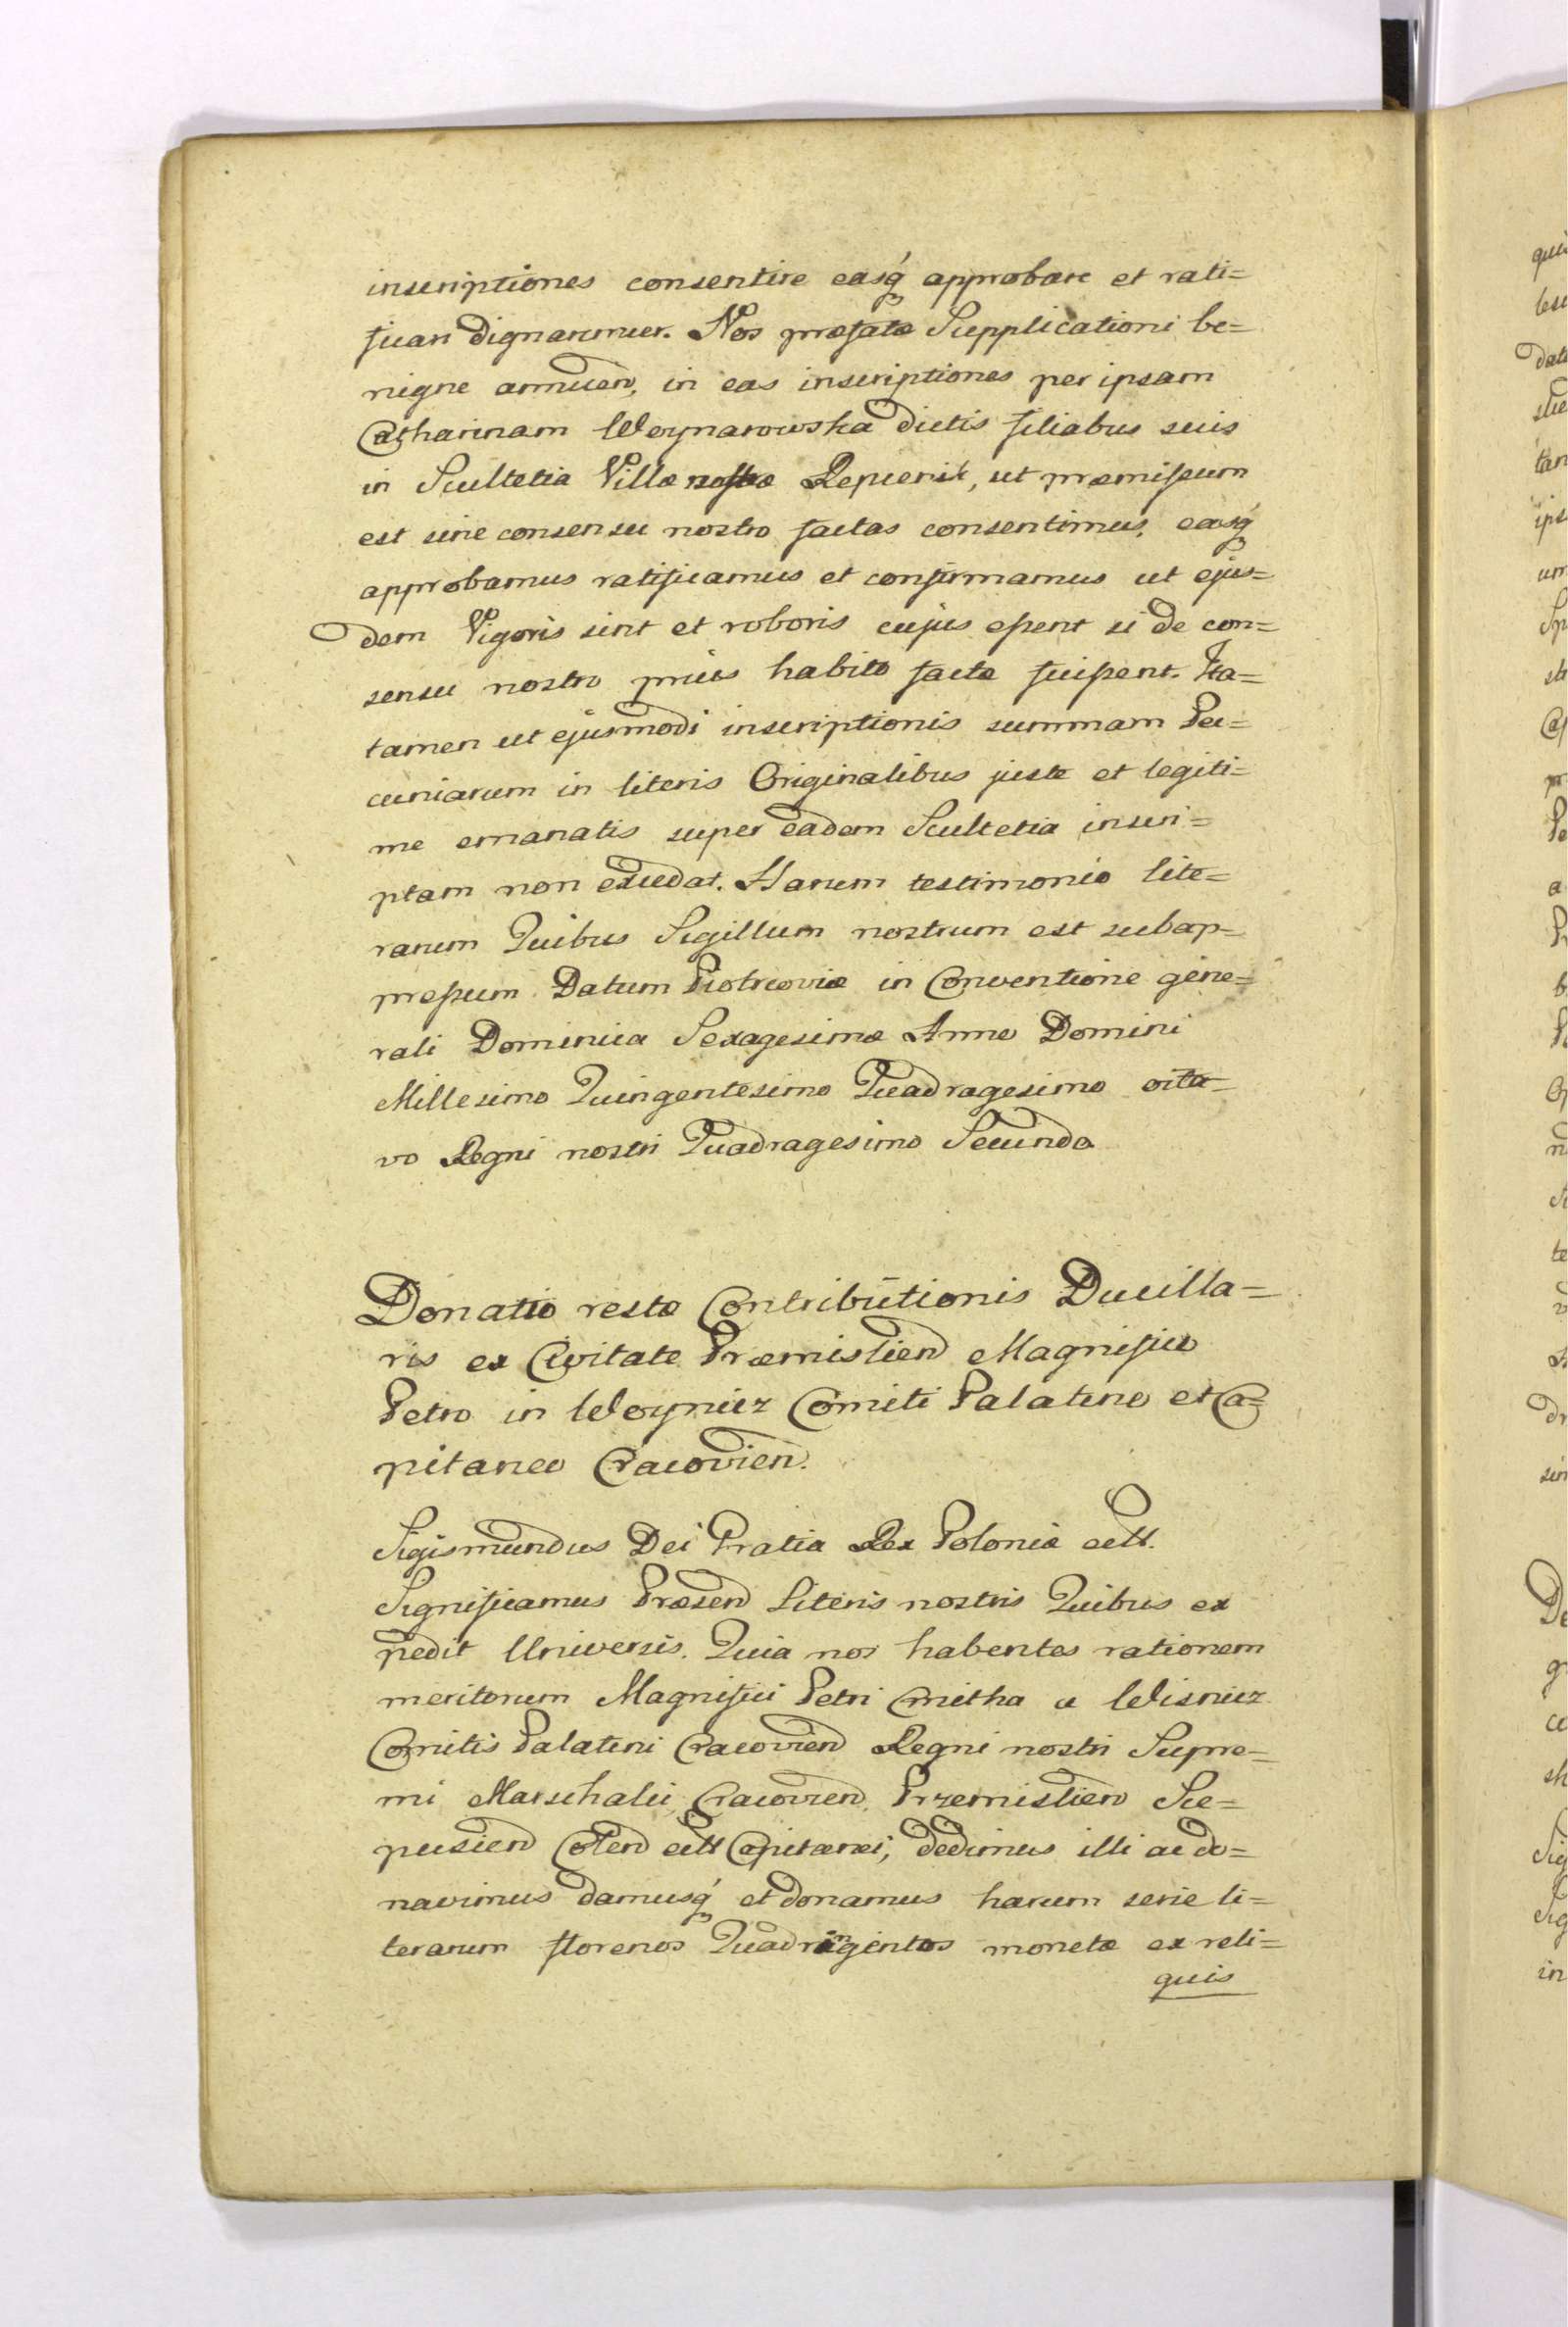 inscriptiones consentire easq́ approbare et rati=
ficari dignaremur. Nos præfatæ Supplicationi be=
nigne annuen, in eas inscriptiones per ipsam
Catharinam Woynarowska dictis filiabus suis
in Scultetia Villæ nostræ Repienik, ut præmissum
est sine consensu nostro factas consentimus, easq́
approbamus ratificamus et confirmamus ut ejus=
dem Vigoris sint et roboris cujus essent si de con=
sensu nostro prius habito factæ fuissent. Ita=
tamen ut ejusmodi inscriptionis summam Pe=
cuniarum in literis Originalibus juste et legiti=
me emanatis super eadem Scultetia inscri=
ptam non excedat. Harum testimonio lite=
rarum Quibus Sigillum nostrum est subap=
pressum Datum Piotrcoviæ in Conventione gene=
rali Dominica Sexagesimæ Anno Domini
Millesimo Quingentesimo Quadragesimo octa=
vo Regni nostri Quadragesimo Secundo
Donatio restæ Contributionis Ducilla=
ris ex Civitate Præmislien Magnifico
Petro in Woynicz Comiti Palatino et Ca=
pitaneo Cracovien.
Sigismundus Dei Gratia Rex Poloniæ ectt.
Significamus Præsen Literis nostris Quibus ex
pedit Universis. Quia nos habentes rationem
meritorum Magnifici Petri Cmitha a Wisnicz
Comitis Palatini Cracovien Regni nostri Supre=
mi Marschalci, Cracovien, Przemislien Sce=
pusien Colen ectt Capitanei, dedimus illi ac do=
navimus damusq́ et donamus harum serie li=
terarum florenos Quadringentos monetæ ex reli=
quis